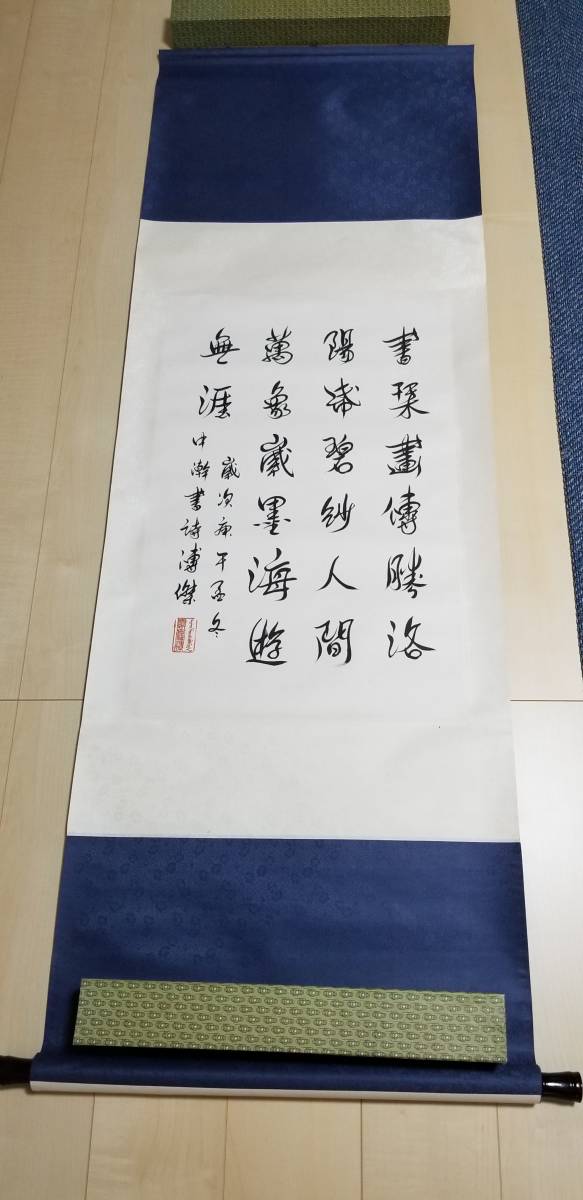 書琹畫傳勝洛
陽盛碧紗人間
萬象歲墨海遊
無涯
歲次庚午孟冬
中澣書詩溥傑